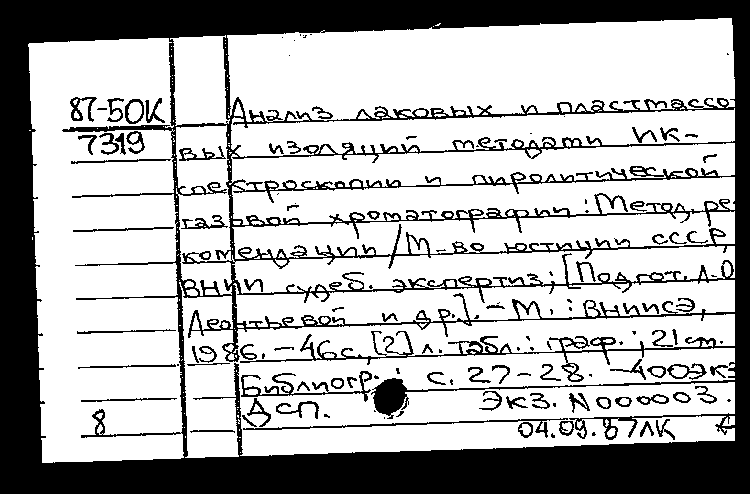 87-50К Анализ лаковых и пластмассо
7319 вых изоляций методами ИК-
спектроскопии и пиролитической
газовой хроматографии : Метод. ре
комендации / М-во юстиции СССР,
ВНИИ судеб. экспертиз; [Подгот. Л.О
Леонтьевой и др.]. - М. : ВНИИСЭ,
1986. - 46 с., [2] л. табл. : граф. ; 21 см.
Библиогр. : с. 27-28. - 400 экз
ДСП. Экз. N 000003.
8 04.09.87 ЛК